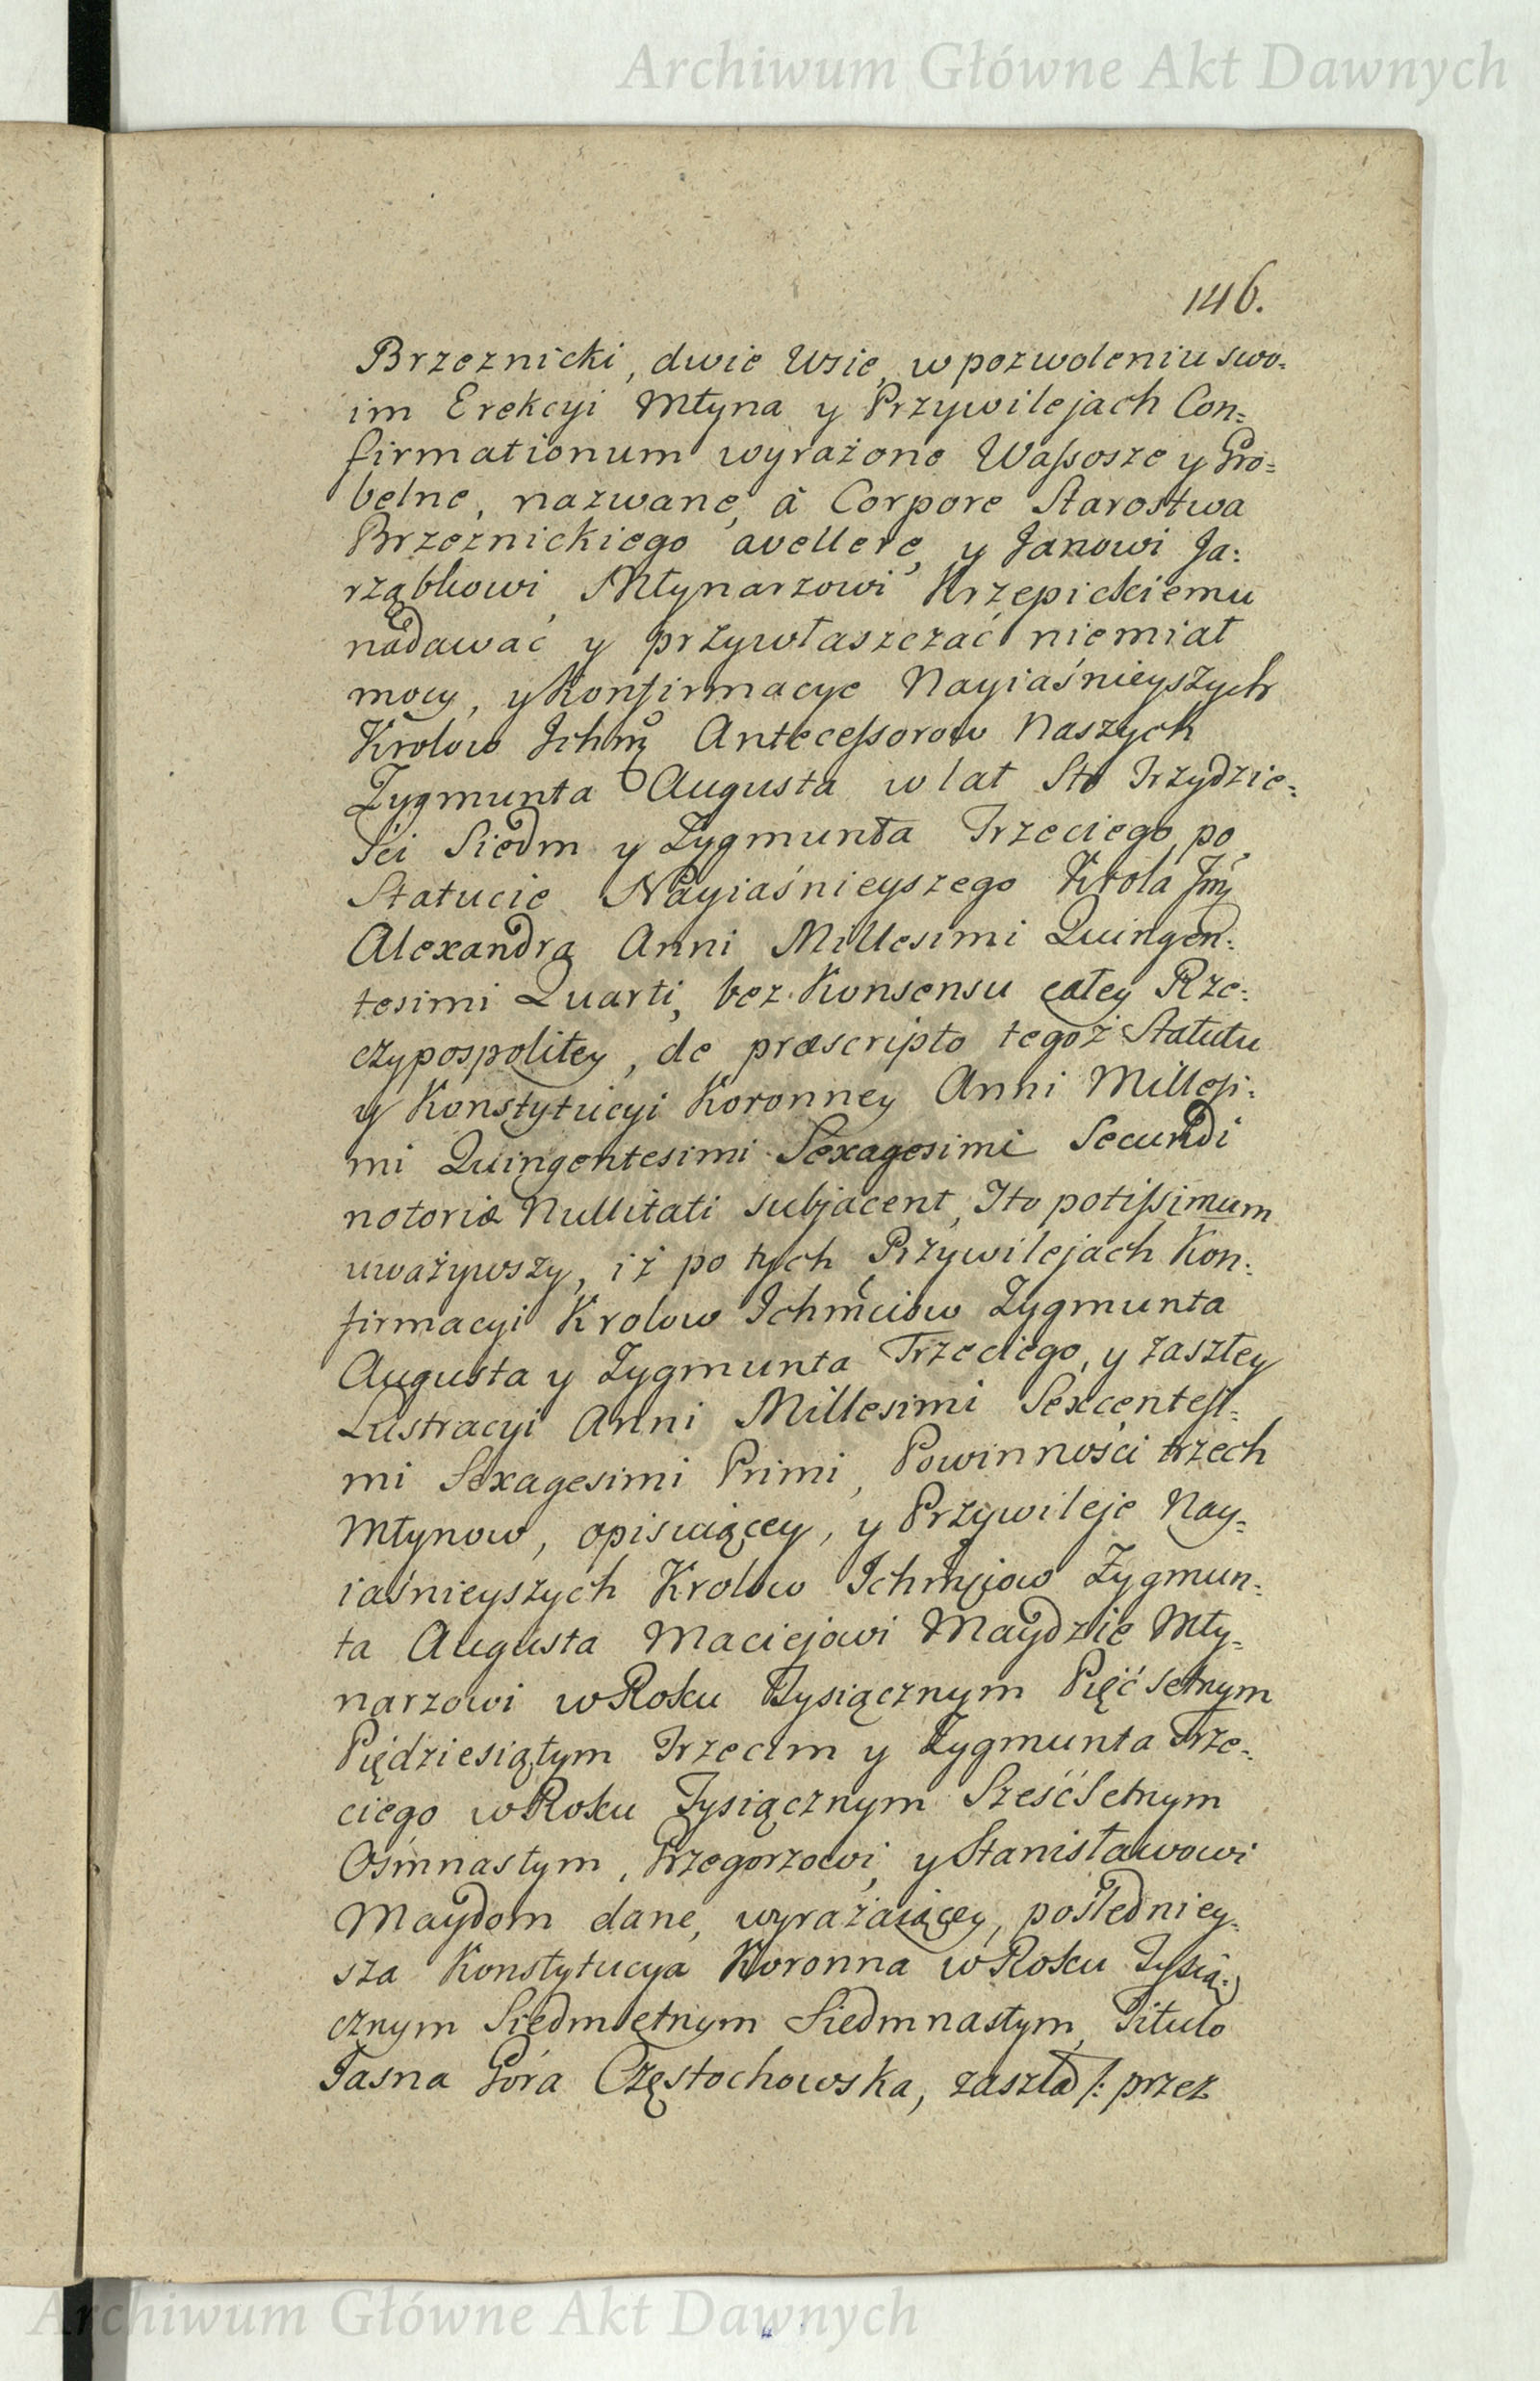 Archiwum Główne Akt Dawnych
146.
Brzeznicki, dwie Wsie, w pozwoleniu swo=
im Erekcyi Młyna y Przywilejach Con=
firmationum wyrażone Wassosze y Gro=
belne, nazwane, à Corpore Starostwa
Brzeznickiego avellere, y Janowi Ja=
rząbkowi Młynarzowi Krzepickiemu
nadawać y przywłaszczać niemiał
mocy, y Konfirmacye Nayiaśnieyszych
Krolow Ichm Antecessorow Naszych
Zygmunta Augusta w lat Sto Trzydzie=
ści Siedm y Zygmunta Trzeciego, po
Statucie Nayiaśnieyszego Krola Jm
Alexandra Anni Millesimi Quingen=
tesimi Quarti, bez Konsensu całey Rze=
czypospolitey, de præscripto tegoż Statutu
y Konstytucyi Koronney Anni Millesi=
mi Quingentesimi Sexagesimi Secundi
notoriæ Nullitati subjacent, Ito potissimum
uważywszy, iż po tych Przywilejach Kon=
firmacyi Krolow Ichmciow Zygmunta
Augusta y Zygmunta Trzeciego, y zaszłey
Lustracyi Anni Millesimi Sexcentesi=
mi Sexagesimi Primi, Powinności trzech
Młynow, opisuiącey, y Przywileje Nay=
iaśnieyszych Krolow Ichmciow Zygmun=
ta Augusta Maciejowi Maydzie Mły=
narzowi w Roku Tysiącznym Pięćsetnym
Piędziesiątym Trzecim y Zygmunta Trze=
ciego w Roku Tysiącznym Sześćsetnym
Ośmnastym, Grzegorzowi, y Stanisławowi
Maydom dane, wyrażaiącey, pośledniey=
sza Konstytucya Koronna w Roku Tysią=
cznym Siedmsetnym Siedmnastym, Titulo
Jasna Góra Częstochowska, zaszła /: przez
Archiwum Główne Akt Dawnych